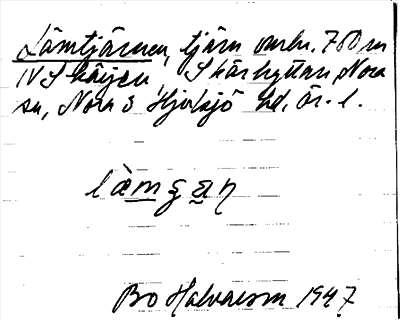 Lämtjärnen, tjärn omkr. 700 m
NV Skärjen, Skärhyttan, Nora
sn, Nora o Hjulsjö hd, Ör. l.
Bo Halvarson 1947